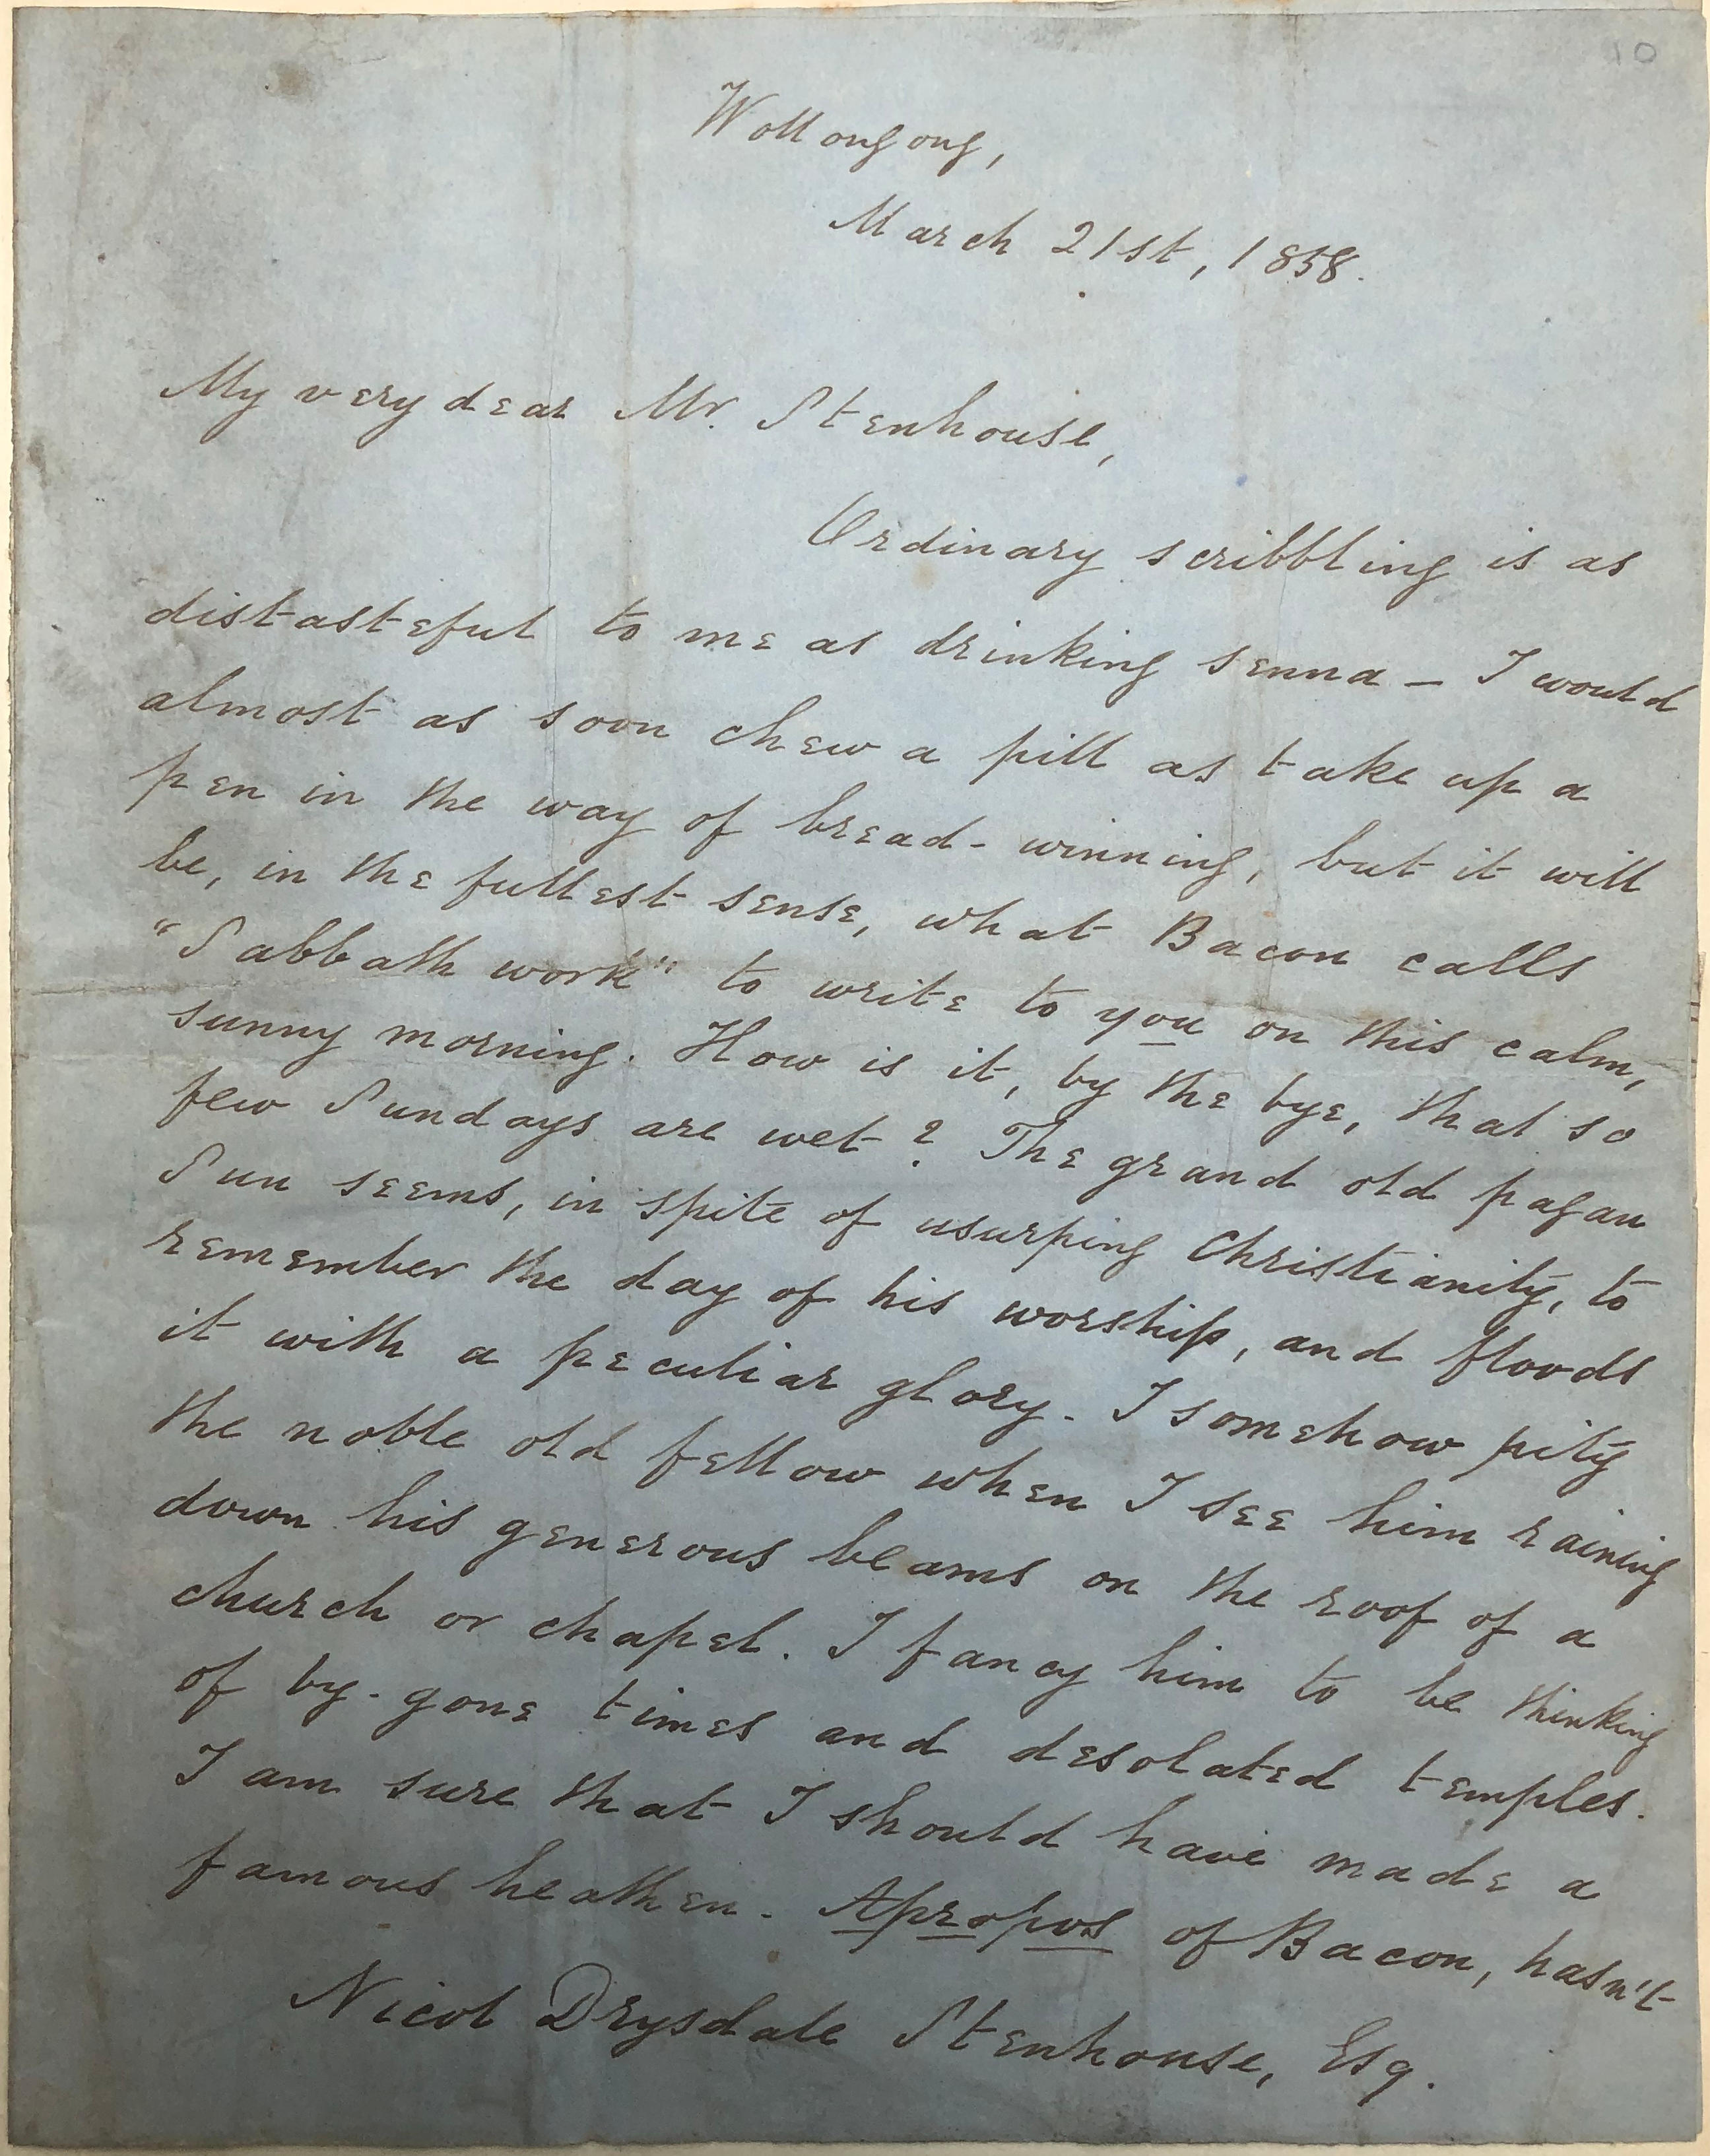 10
Wollongong,
March 21st, 1858.
My very dear Mr. Stenhouse,
Ordinary scribbling is as
distasteful to me as drinking senna — I would
almost as soon chew a pill as take up a
pen in the way of bread-winning, but it will
be, in the fullest sense, what Bacon calls
"Sabbath work" to write to you on this calm,
sunny morning. How is it, by the bye, that so
few Sundays are wet? The grand old pagan
Sun seems, in spite of usurping Christianity, to
remember the day of his worship, and floods
it with a peculiar glory. I somehow pity
the noble old fellow when I see him raining
down his generous beams on the roof of a
church or chapel. I fancy him to be thinking
of by-gone times and desolated temples.
I am sure that I should have made a
famous heathen. Apropos of Bacon, hasn't
Nicol Drysdale Stenhouse, Esq.